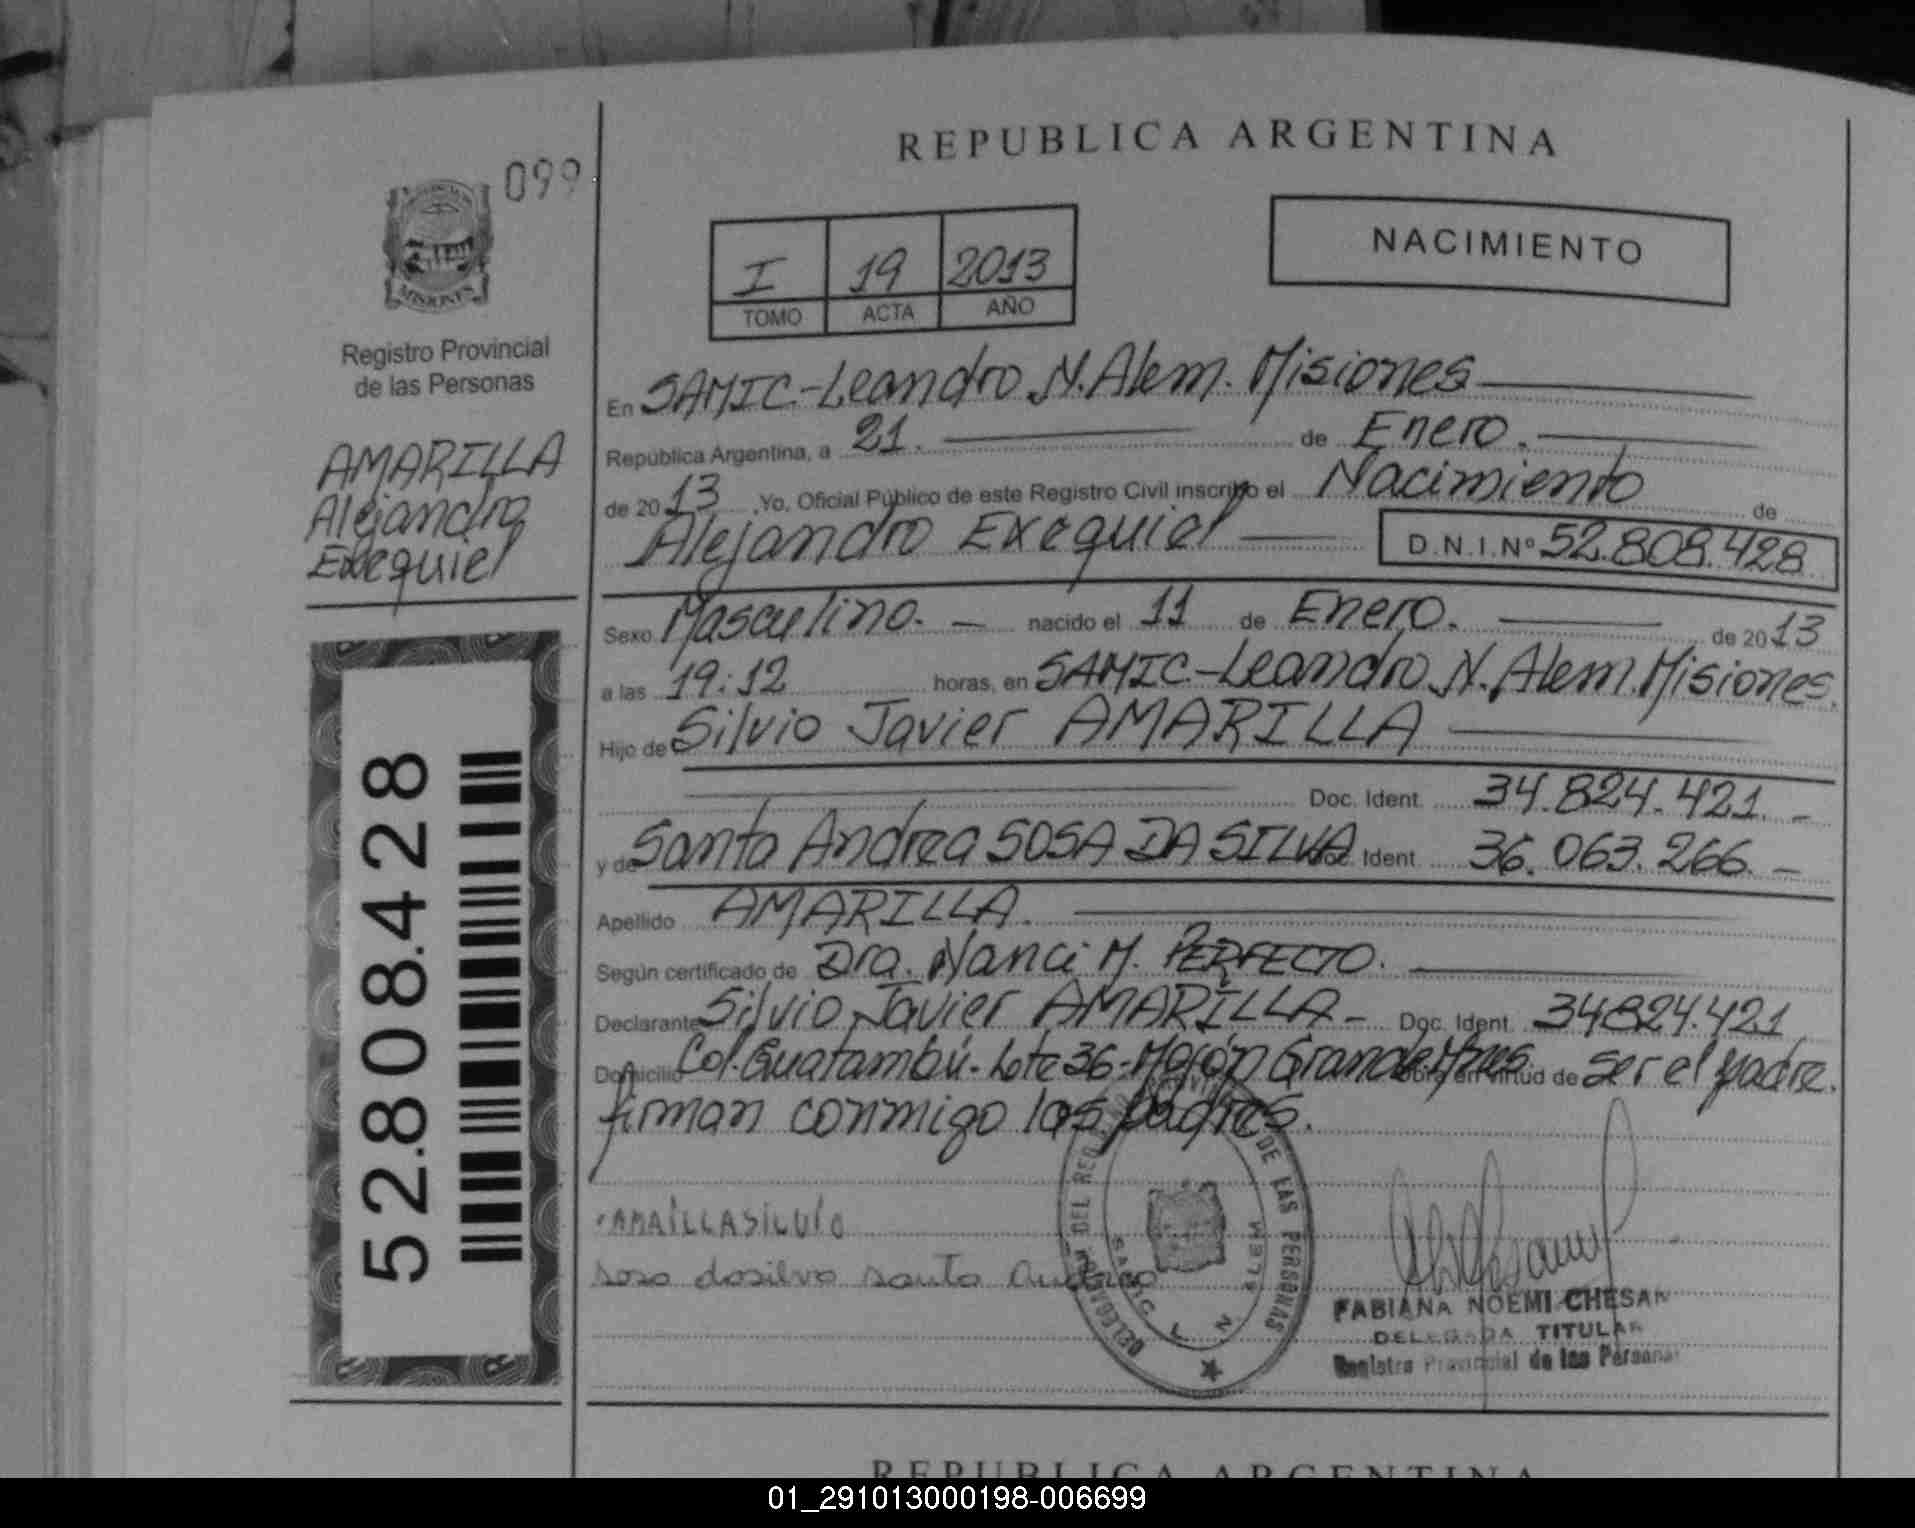 REPUBLICA ARGENTINA
099
NACIMIENTO
I 19 2013
TOMO ACTA AÑO
MISIONES
Registro Provincial
de las Personas
AMARILLA
Alejandro
Exequiel
52.808.428
En SAMIC-Leandro N. Alem. Misiones
República Argentina, a 21. de Enero.
de 2013 Yo, Oficial Público de este Registro Civil inscribo el Nacimiento de
Alejandro Exequiel D.N.I.Nº 52.808.428
Sexo Masculino. - nacido el 11 de Enero. de 2013
a las 19:12 horas, en SAMIC.-Leandro N. Alem. Misiones.
Hijo de Silvio Javier AMARILLA
Doc. Ident. 34.824.421.-
y de Santa Andrea SOSA DA SILVA Doc. Ident. 36.063.266.-
Apellido AMARILLA.
Según certificado de Dra. Nanci M. PERFECTO.
Declarante Silvio Javier AMARILLA- Doc. Ident. 34824.421
Domicilio Col. Guatambú-Lote 36-Mojón Grande. Mnes. obra en virtud de ser el padre.
firman conmigo los padres.
AMAILLASILVIO
sosa dasilva santa Andrea
DELEGACION DEL REG PROVINCIAL DE LAS PERSONAS
SAMIC L. N. ALEM
FABIANA NOEMI CHESAN
DELEGADA TITULAR
Registro Provincial de las Personas
REPUBLICA ARGENTINA
01_291013000198-006699